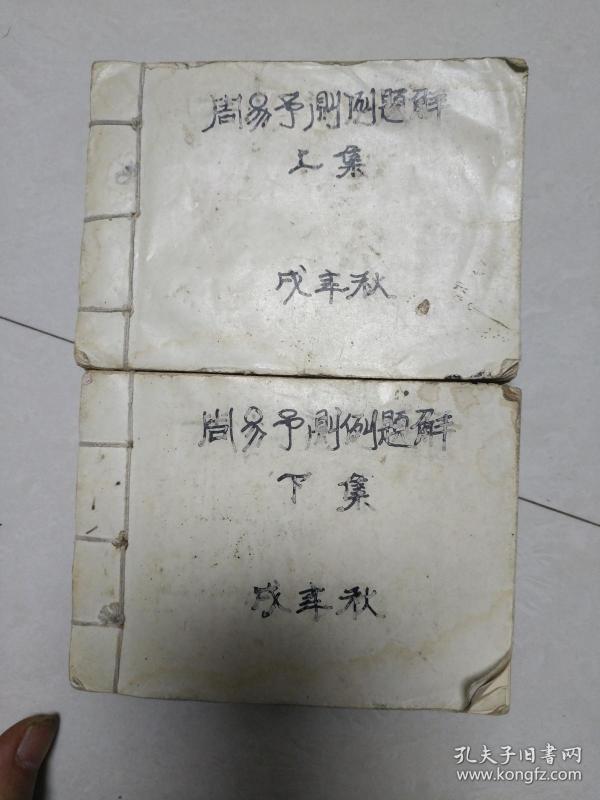 周易予測例題解
上集
戌年秋
周易予測例題解
下集
戌年秋
孔夫子旧书网
www.kongfz.com